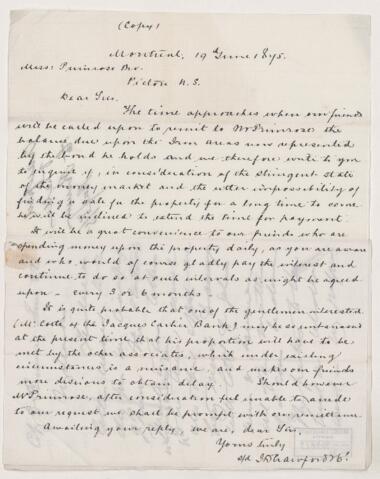 (Copy)
Montreal, 19th June 1875.
Messrs Primrose Bro.
Pictou N.S.
Dear Sirs.
The time approaches when our friends
will be called upon to remit to Mr Primrose the
balance due upon the Iron Areas now represented
by the bond he holds and we therefore write to you
to inquire if, in consideration of the stringent state
of the money market and the utter impossibility of
finding a sale for the property for a long time to come
he will be inclined to extend the time for payment.
It will be a great convenience to our friends who are
spending money upon the property daily, as you are aware
and who would of course gladly pay the interest and
continue to do so at such intervals as might be agreed
upon - every 3 or 6 months -
It is quite probable that one of the gentlemen interested
(Mr Cotté of the Jacques Cartier Bank) may be so embarrassed
at the present time that his proportion will have to be
met by the other associates, which under existing
circumstances is a nuisance, and makes our friends
more desirous to obtain delay. Should however
Mr Primrose, after consideration feel unable to accede
to our request we shall be prompt with our remittance.
Awaiting your reply, we are, dear Sirs,
Yours truly
s/d J.D. Crawford & Co.